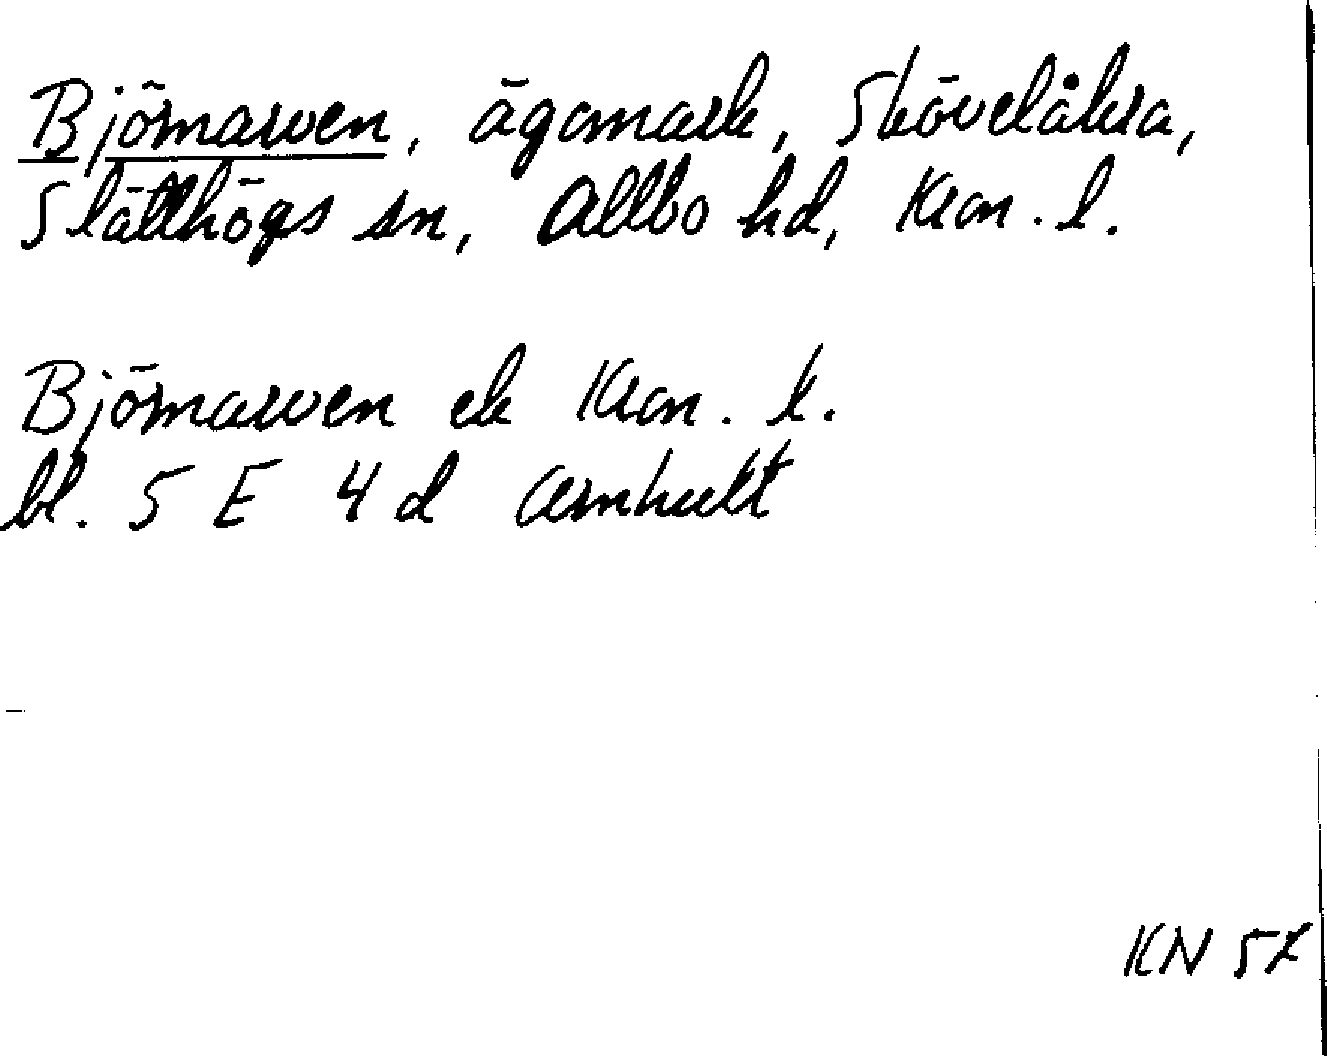 Björnarven, ägomark, Skäveläkra,
Slätthögs sn, Allbo hd, Kron. l.
Björnarven ek Kron. l.
bl. 5 E 4 d
KN 57